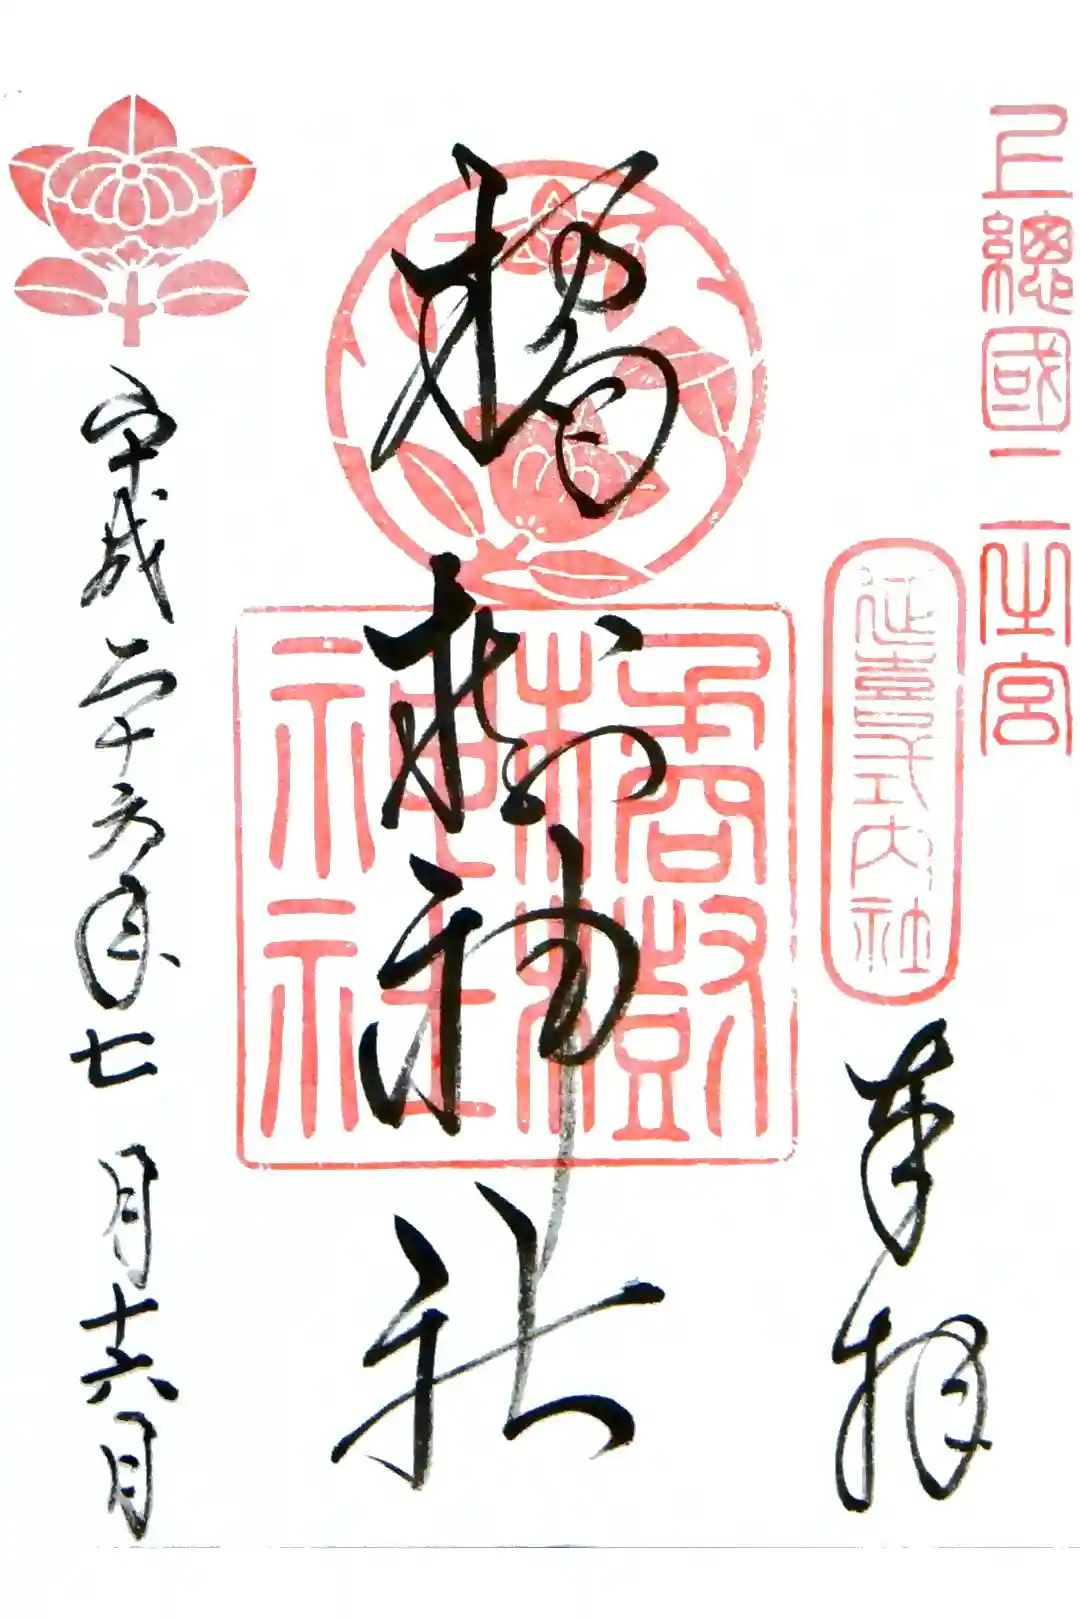 上總國二之宮
延喜式内社
奉拝
橘樹神社
橘樹神社
平成二十六年七月十六日